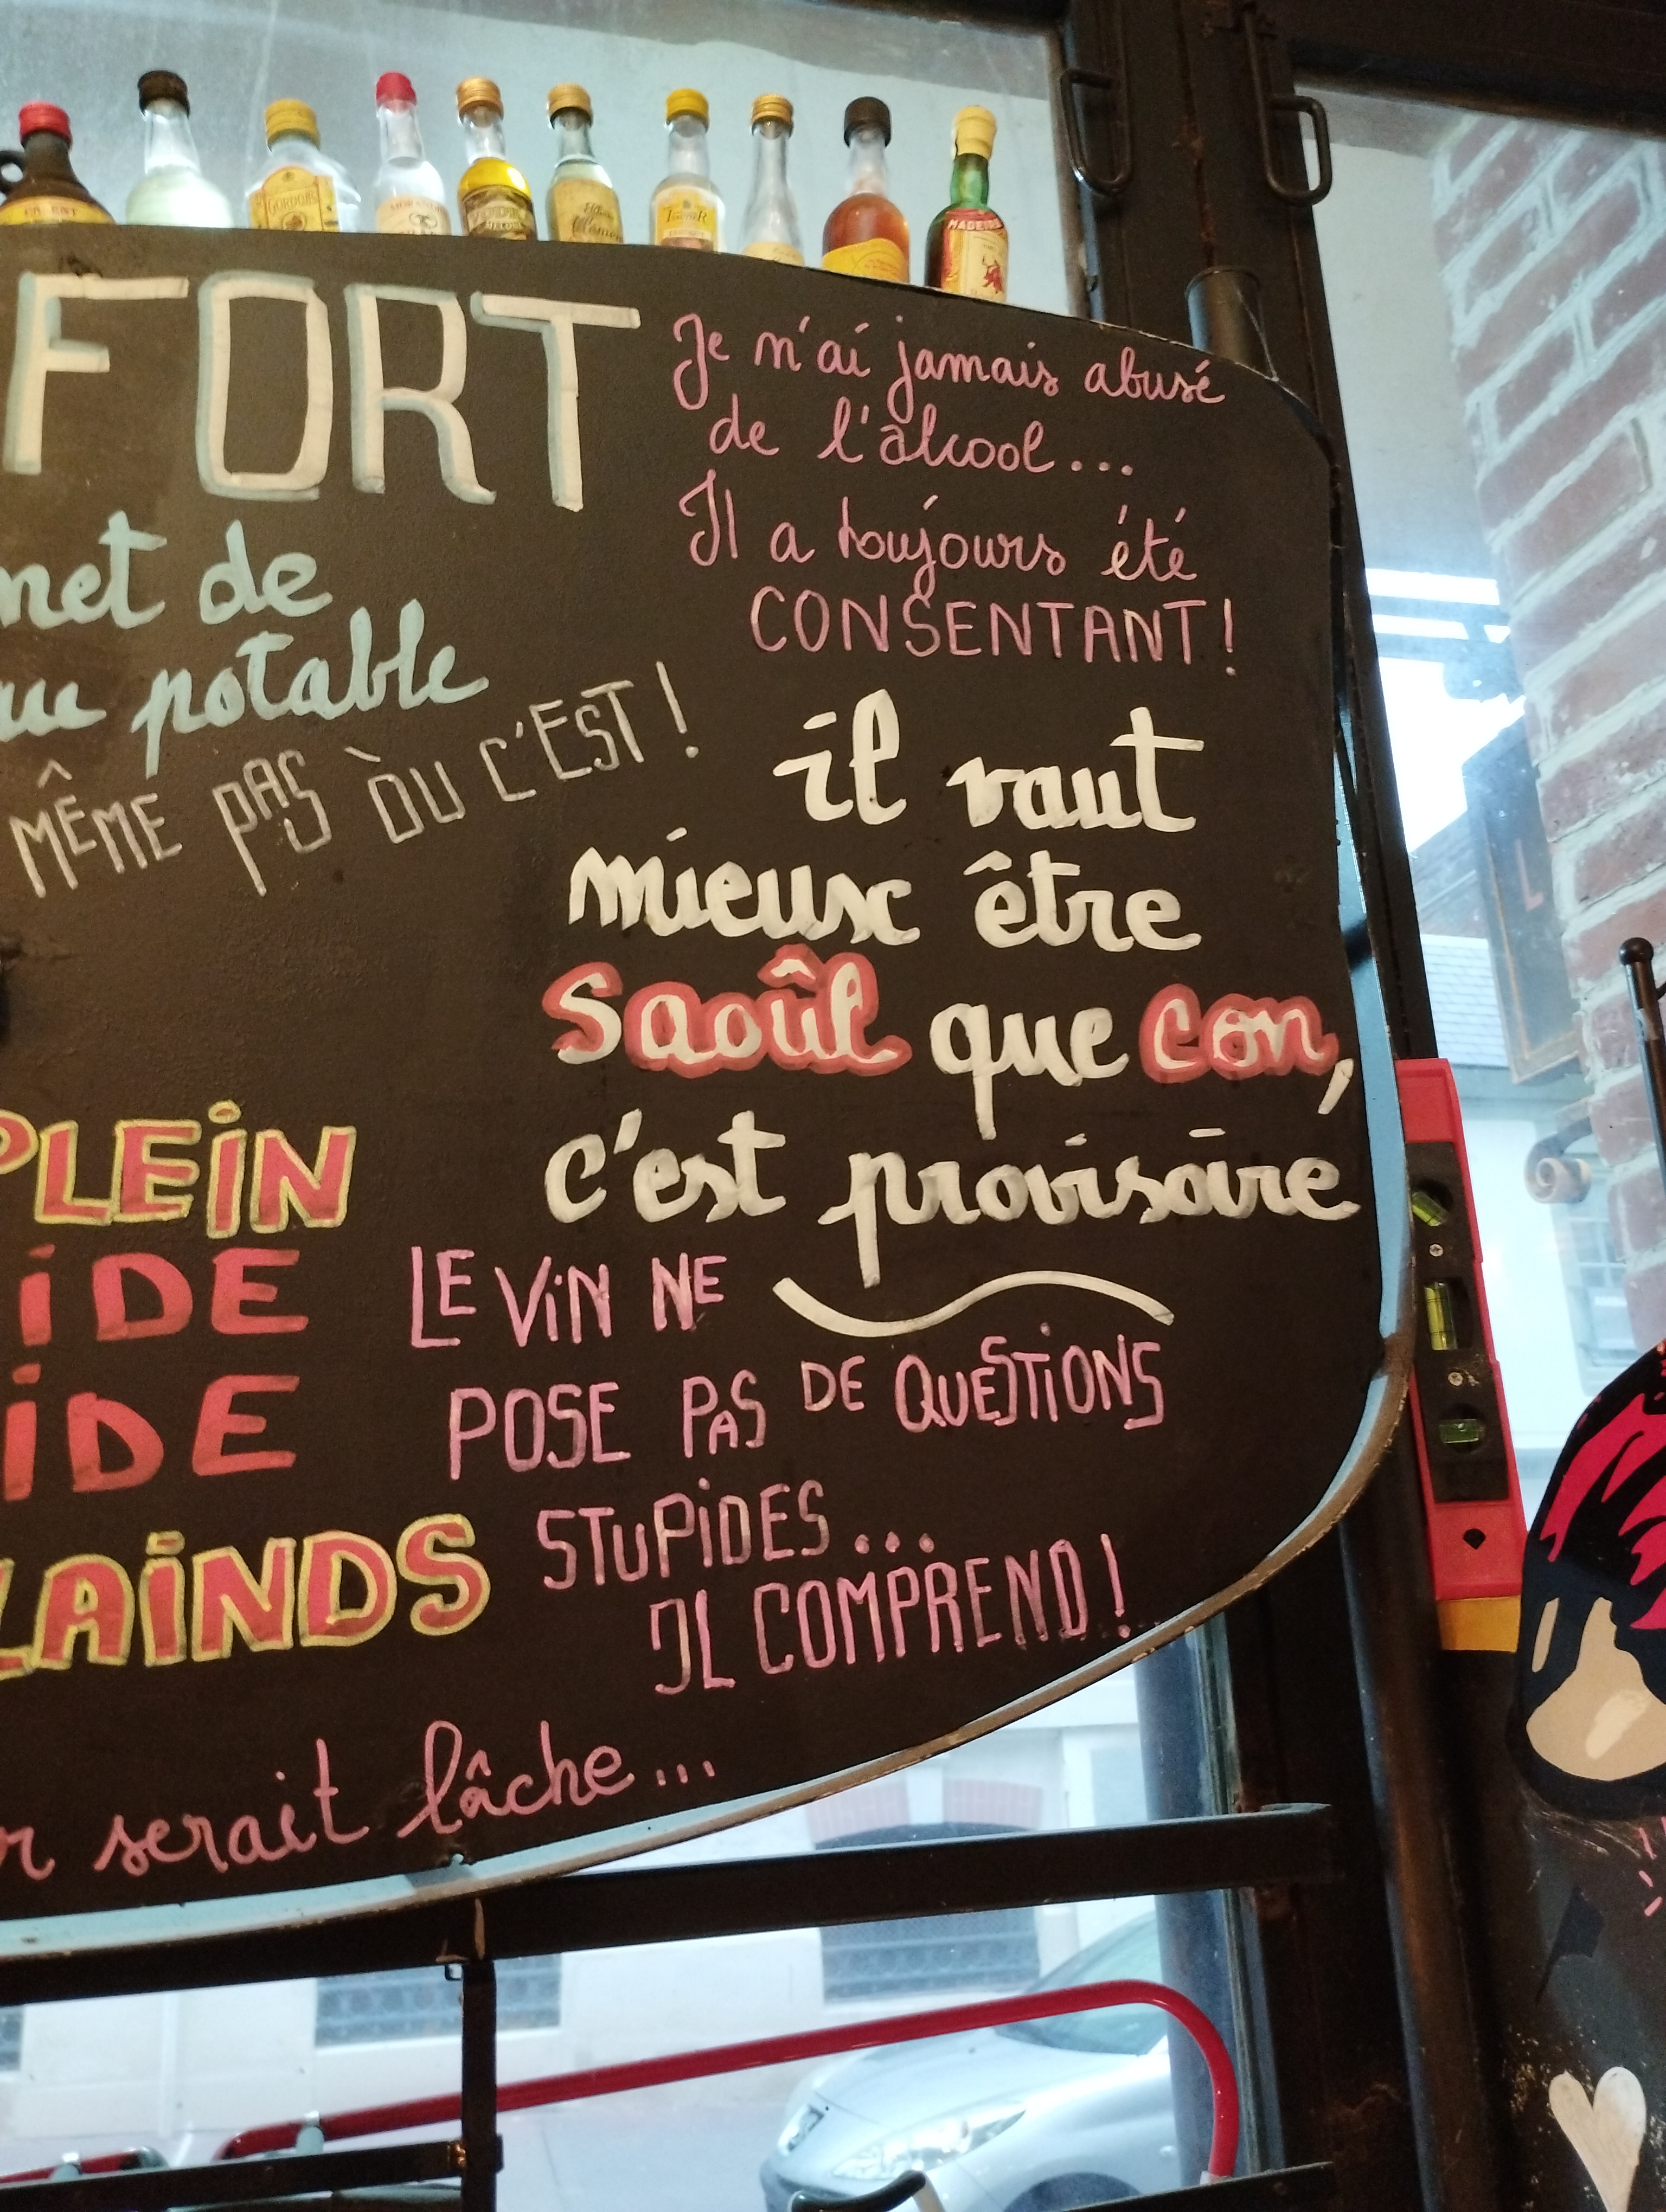 GORDON'S
MADEIRA
FORT
Je n'ai jamais abusé
de l'alcool...
Il a toujours été
CONSENTANT !
met de
au potable
MÊME PAS ÒU C'EST !
il vaut
mieux être
Saoûl que con,
c'est provisoire
PLEIN
IDE
IDE
LAINDS
LE VIN NE
POSE PAS DE QUESTIONS
STUPIDES...
IL COMPREND !
r serait lâche...